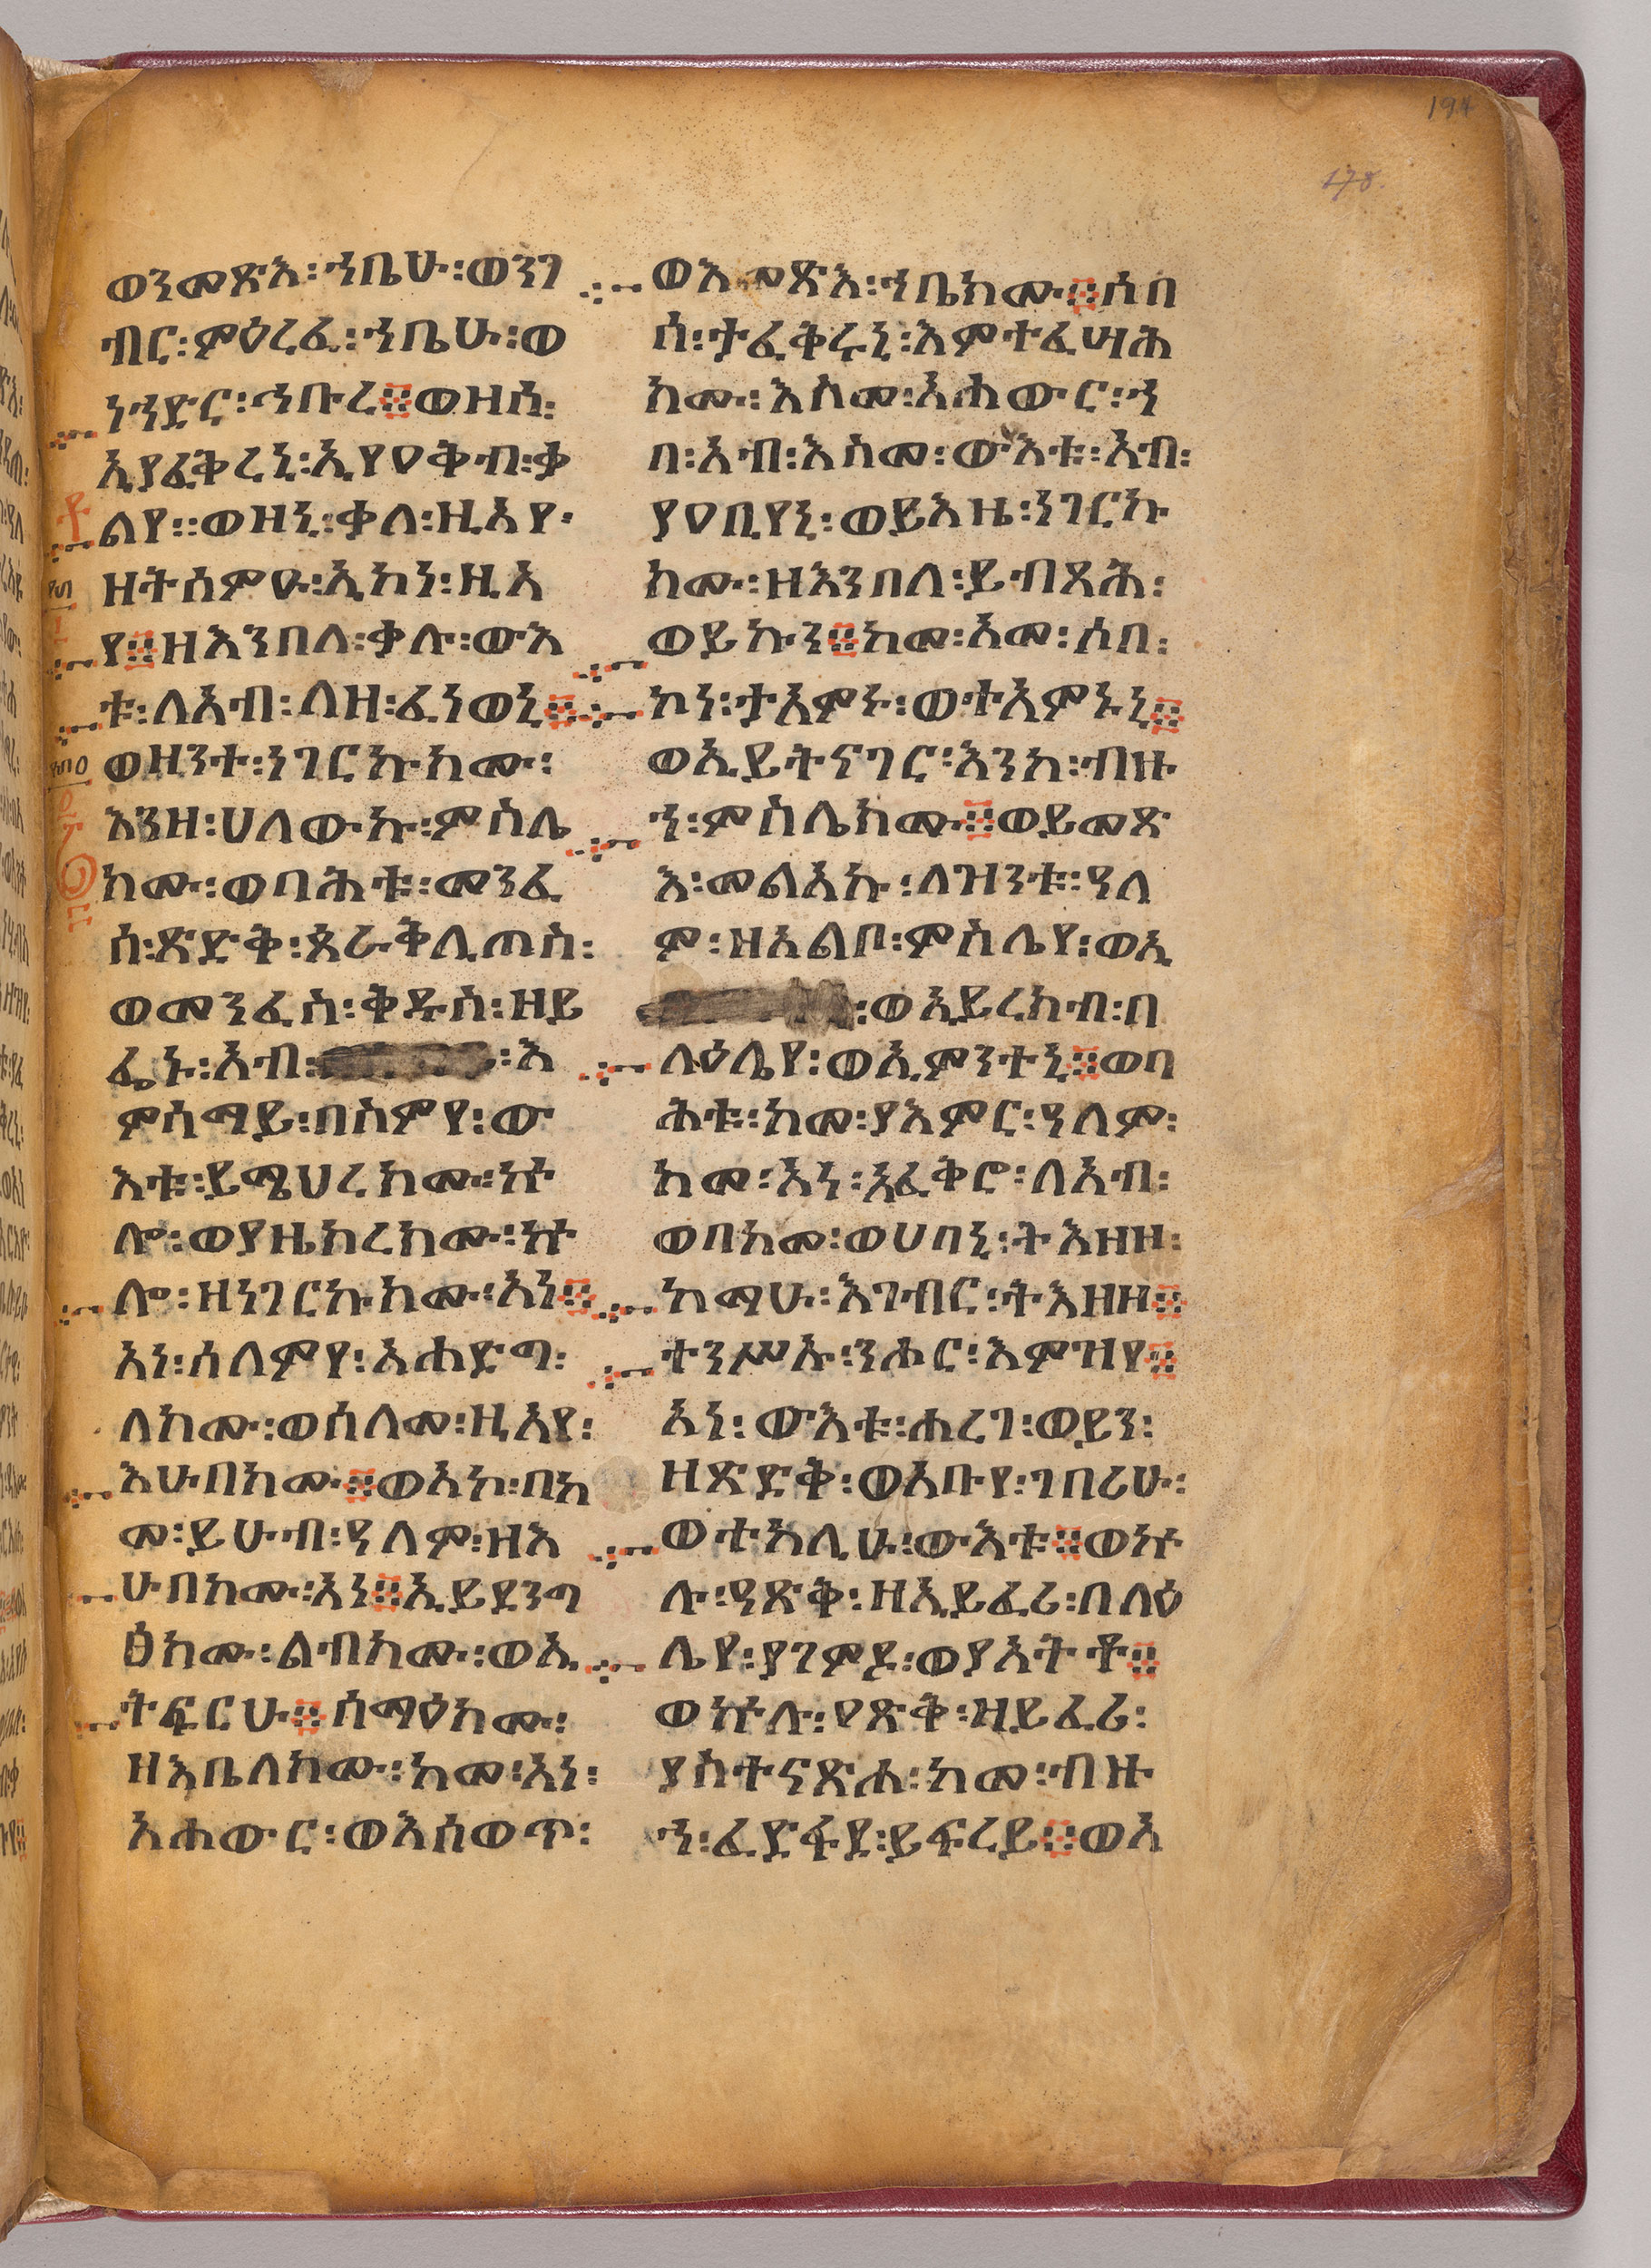 194
178.
ወንመጽእ፡ኀቤሁ፡ወንገ
ብር፡ምዕረፈ፡ኀቤሁ፡ወ
ነኀድር፡ኀቡረ፨ወዘሰ፡
ኢያፈቅረኒ፡ኢየዐቅብ፡ቃ
ልየ፡፡ወዘኒ፡ቃለ፡ዚአየ፡
ዘትሰምዑ፡ኢኮነ፡ዚአ
የ፨ዘእንበለ፡ቃሉ፡ውእ
ቱ፡ለአብ፡ለዘ፡ፈነወኒ፨
ወዘንተ፡ነገርኩክሙ፡
እንዘ፡ሀለውኩ፡ምስሌ
ክሙ፡ወባሕቱ፡መንፈ
ሰ፡ጽድቅ፡ጰራቅሊጦስ፡
ወመንፈስ፡ቅዱስ፡ዘይ
ፌኑ፡አብ፡ ፡እ
ምሰማይ፡በስምየ፡ው
እቱ፡ይሜህረክሙ፡ኵ
ሎ፡ወያዜክረክሙ፡ኵ
ሎ፡ዘነገርኩክሙ፡አነ፨
አነ፡ሰላምየ፡አሐድግ፡
ለክሙ፡ወሰላመ፡ዚአየ፡
እሁበክሙ፨ወአኮ፡በከ
መ፡ይሁብ፡ዓለም፡ዘእ
ሁበክሙ፡አነ፨ኢይደንግ
ፅክሙ፡ልብክሙ፡ወኢ
ትፍርሁ፨ሰማዕክሙ፡
ዘእቤለክሙ፡ከመ፡አነ፡
አሐውር፡ወእሰወጥ፡
ወእመጽእ፡ኀቤክሙ፨ሰበ
ሰ፡ታፈቅሩኒ፡እምተፈሣሕ
ክሙ፡እስመ፡አሐውር፡ኀ
በ፡አብ፡እስመ፡ውእቱ፡አብ፡
ያዐቢየኒ፡ወይእዜ፡ነገርኩ
ክሙ፡ዘእንበለ፡ይብጻሕ፡
ወይኩን፨ከመ፡አመ፡ሰበ፡
ኮነ፡ታአምኑ፡ወተአምኑኒ፨
ወኢይትናገር፡እንከ፡ብዙ
ኀ፡ምስሌክሙ፨ወይመጽ
እ፡መልአኩ፡ለዝንቱ፡ዓለ
ም፡ዘአልቦ፡ምስሌየ፡ወኢ
፡ወኢይረክብ፡በ
ላዕሌየ፡ወኢምንተኒ፨ወባ
ሕቱ፡ከመ፡ያእምር፡ዓለም፡
ከመ፡አነ፡አፈቅሮ፡ለአብ፡
ወበከመ፡ወሀበኒ፡ትእዘዘ፡
ከማሁ፡እገብር፡ትእዘዘ፨
ተንሥኡ፡ንሖር፡እምዝየ፨
አነ፡ውእቱ፡ሐረገ፡ወይን፡
ዘጽድቅ፡ወአቡየ፡ገበሪሁ፡
ወተከሊሁ፡ውእቱ፨ወኵ
ሉ፡ዓጽቅ፡ዘኢይፈሪ፡በላዕ
ሌየ፡ያገምዶ፡ወያእትቶ፨
ወኵሉ፡ዐጽቅ፡ዘይፈሪ፡
ያስተናጽሐ፡ከመ፡ብዙ
ኀ፡ፈድፋደ፡ይፍረይ፨ወአ